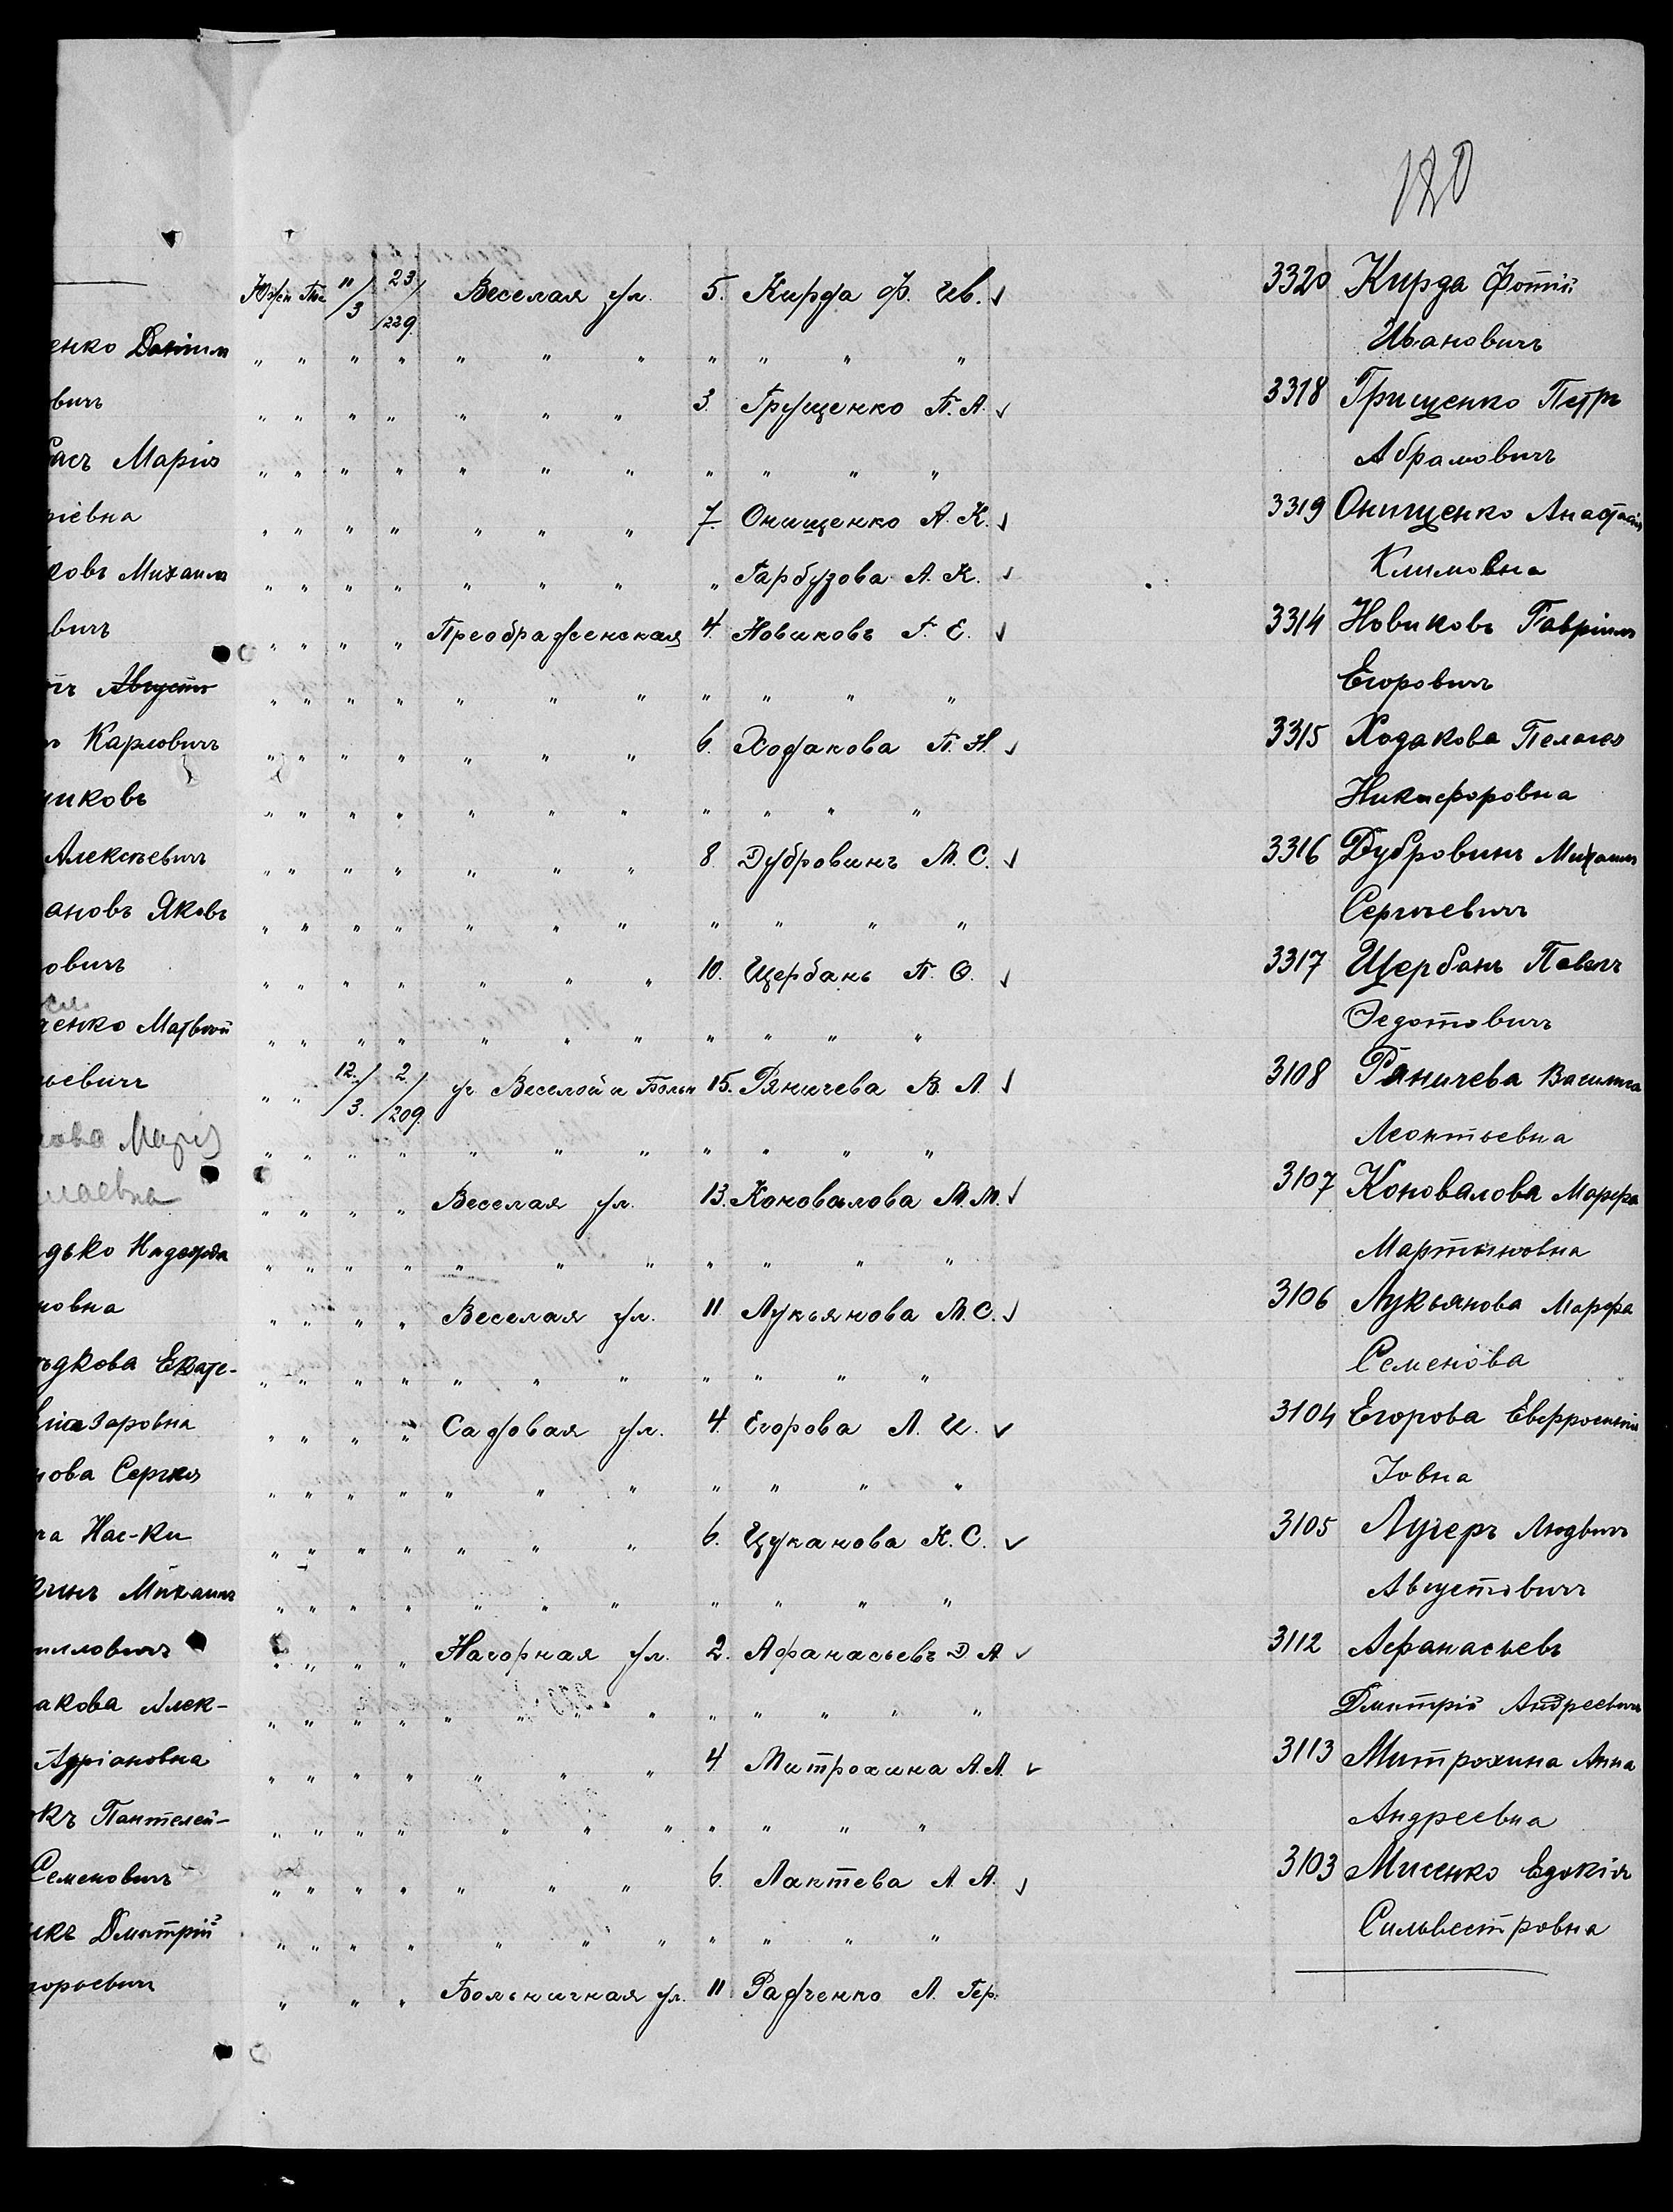 120
11/3 23/229 Веселая ул. 5. Кирда Ф. Ив. 3320 Кирда Фотій
енко " " " " " " " " " " " Ивановичъ
вичъ " " " " " " " 3. Грущенко П. А. 3318 Грищенко Петръ
Марія " " " " " " " " " " " Абрамовичъ
іевна " " " " " " " 7. Онищенко А. К. 3319 Онищенко Анастасія
ковъ Михаилъ " " " " " " " " Гарбузова А. К. Климовна
вичъ " " " " Преображенская 4. Новиковъ Г. Е. 3314 Новиковъ Гавріилъ
Августъ " " " " " " " " " " " Егоровичъ
ъ Карловичъ " " " " " " " 6. Ходакова П. Н. 3315 Ходакова Пелагея
никовъ " " " " " " " " " " " Никифоровна
Алексѣевичъ " " " " " " " 8. Дубровинъ М. С. 3316 Дубровинъ Михаилъ
ановъ Яковъ " " " " " " " " " " " Сергѣевичъ
овичъ " " " " " " " 10. Щербань П. Ѳ. 3317 Щербань Павелъ
ченко Матвѣй " " " " " " " " " " " Ѳедотовичъ
ьевичъ " " 12./3. 2/209. уг Веселой и Больн 15. Ряничева В. Л. 3108 Ряничева Василиса
нова Марія " " " " " " " " " " " Леонтьевна
лаевна " " " " Веселая ул. 13. Коновалова М. М. 3107 Коновалова Марфа
дько Надежда " " " " " " " " " " " Мартиновна
новна " " " " Веселая ул. 11. Лукьянова М. С. 3106 Лукьянова Марфа
ъдкова Екате- " " " " " " " " " " " Семенова
заровна " " " " Садовая ул. 4. Егорова Л. И. 3104 Егорова Евфросинія
нова Сергѣя " " " " " " " " " " " Іовна
Нас-ки " " " " " " " 6. Цуканова К. С. 3105 Лугеръ Людвигъ
кинъ Михаилъ " " " " " " " " " " " Августовичъ
иловичъ " " " " Нагорная ул. 2. Афанасьевъ Д А 3112 Афанасьевъ
акова Алек- " " " " " " " " " " " " " Дмитрій Андреевичъ
Адріановна " " " " " " " 4 Митрохина А. А. 3113 Митрохина Анна
окъ Пантелей- " " " " " " " " " " " Андреевна
Семеновичъ " " " " " " " 6. Лактева А. А. 3103 Мисенко Евдокія
икъ Дмитрій " " " " " " " " " " " Сильвестровна
горьевичъ " " " Больничная ул. 11. Радченко Л. Гер.